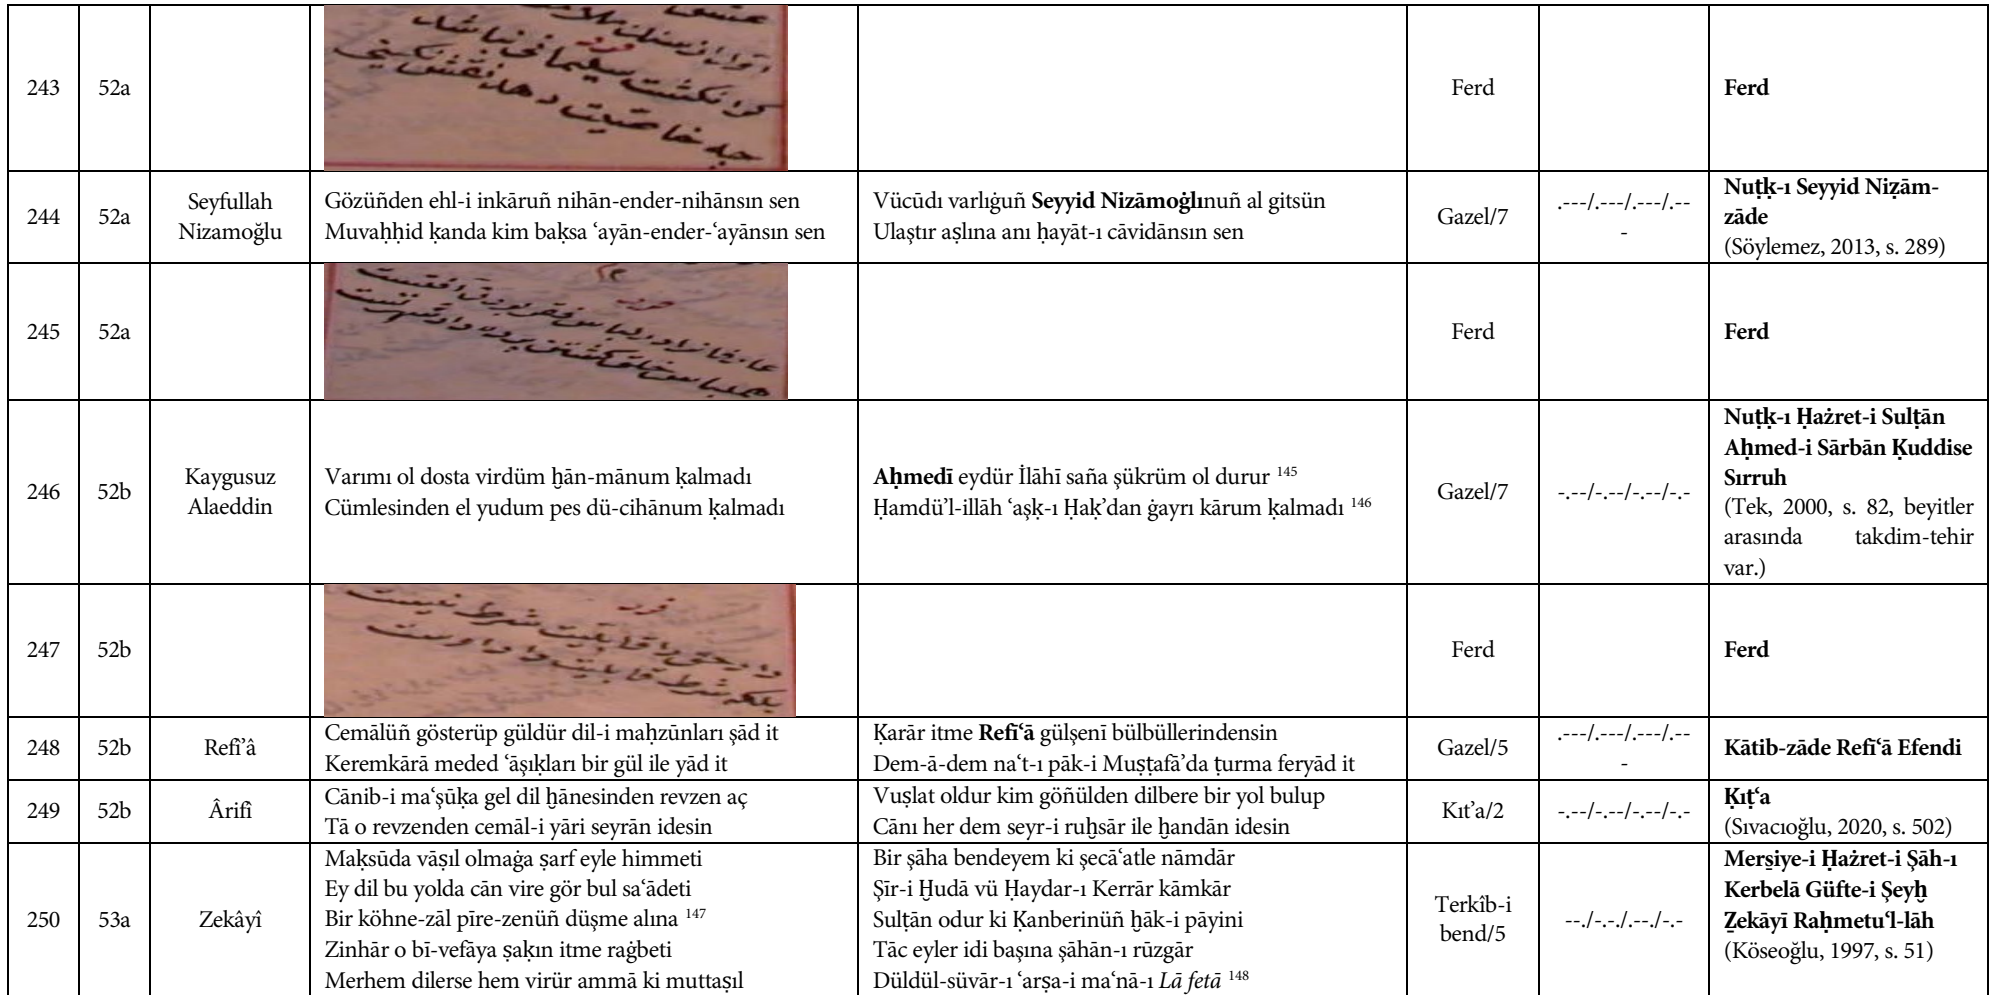 243 52a
فرد
كر انكشت سليمانى نباشد
چه خاصيت دهد نقش نكينى
Ferd Ferd
244 52a Seyfullah Nizamoğlu
Gözüñden ehl-i inkāruñ nihān-ender-nihānsın sen
Muvaḥḥid ḳanda kim baḳsa ʻayān-ender-ʻayānsın sen
Vücūdı varlıġuñ Seyyid Nizāmoġlınuñ al gitsün
Ulaştır aṣlına anı ḥayāt-ı cāvidānsın sen
Gazel/7
.---/.---/.---/.--
-
Nuṭḳ-ı Seyyid Niẓām-
zāde
(Söylemez, 2013, s. 289)
245 52a
فرد
عارفانرا در لباس فقر بودن آفتست
لباس خلق كشتن پرده دار شهرتست
Ferd Ferd
246 52b Kaygusuz Alaeddin
Varımı ol dosta virdüm ḫān-mānum ḳalmadı
Cümlesinden el yudum pes dü-cihānum ḳalmadı
Aḥmedī eydür İlāhī saña şükrüm ol durur 145
Ḥamdü’l-illāh ʻaşḳ-ı Ḥaḳ’dan ġayrı kārum ḳalmadı 146
Gazel/7
-.--/-.--/-.--/-.-
Nuṭḳ-ı Ḥażret-i Sulṭān
Aḥmed-i Sārbān Ḳuddise
Sırruh
(Tek, 2000, s. 82, beyitler
arasında takdim-tehir
var.)
247 52b
فرد
داد حق را قابليت شرط نيست
بلكه شرط قابليت داد اوست
Ferd Ferd
248 52b Refî’â
Cemālüñ gösterüp güldür dil-i maḥzūnları şād it
Keremkārā meded ʻāşıḳları bir gül ile yād it
Ḳarār itme Refīʻā gülşenī bülbüllerindensin
Dem-ā-dem naʻt-ı pāk-i Muṣṭafā’da ṭurma feryād it
Gazel/5
.---/.---/.---/.--
-
Kātib-zāde Refīʻā Efendi
249 52b Ârifî
Cānib-i maʻşūḳa gel dil ḫānesinden revzen aç
Tā o revzenden cemāl-i yāri seyrān idesin
Vuṣlat oldur kim göñülden dilbere bir yol bulup
Cānı her dem seyr-i ruḫsār ile ḫandān idesin
Kıt’a/2
-.--/-.--/-.--/-.-
Ḳıṭʻa
(Sıvacıoğlu, 2020, s. 502)
250 53a Zekâyî
Maḳsūda vāṣıl olmaġa ṣarf eyle himmeti
Ey dil bu yolda cān vire gör bul saʻādeti
Bir köhne-zāl pīre-zenüñ düşme alına 147
Zinhār o bī-vefāya ṣaḳın itme raġbeti
Merhem dilerse hem virür ammā ki muttaṣıl
Bir şāha bendeyem ki şecāʻatle nāmdār
Şīr-i Ḫudā vü Ḥaydar-ı Kerrār kāmkār
Sulṭān odur ki Ḳanberinüñ ḫāk-i pāyini
Tāc eyler idi başına şāhān-ı rūzgār
Düldül-süvār-ı ʻarṣa-i maʻnā-ı Lā fetā 148
Terkîb-i
bend/5
--./-.-./.--./-.-
Mers̱iye-i Ḥażret-i Şāh-ı
Kerbelā Güfte-i Şeyḫ
Ẕekāyī Raḥmetuʻl-lāh
(Köseoğlu, 1997, s. 51)